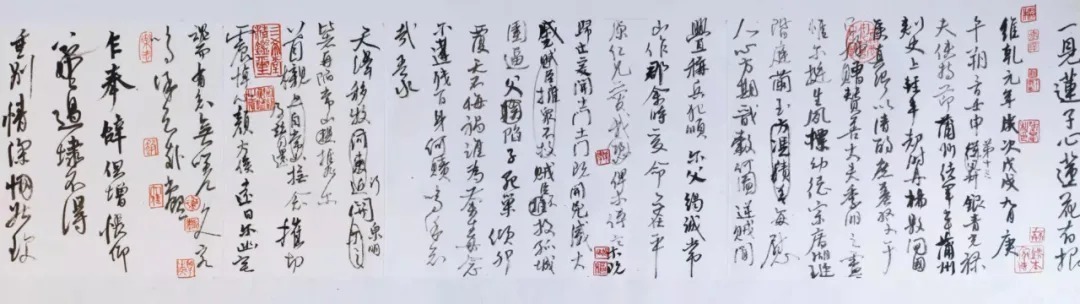 一見蓮子心蓮花有根
維乾元元年歲次戊戌九月庚
午朔三日壬申銀青光祿
夫使持節蒲州諸軍事蒲州
刺史上輕車都尉丹楊縣開國
侯真卿以清酌庶羞祭于
贈贊善大夫季明之靈
惟爾挺生夙標幼德宗廟瑚璉
階庭蘭玉每慰
人心方期戩穀何圖逆賊間
釁稱兵犯順爾父竭誠常
山作郡余時受命亦在平
原仁兄愛我爾既
歸止爰開土門土門既開兇威大
蹙賊臣擁眾不救孤城
圍逼父陷子死巢傾卵
覆天不悔禍誰為荼毒念
爾遘殘百身何贖嗚呼哀
哉吾承
天澤移牧河關泉明
再陷常山攜爾
首櫬摧切
震悼心顏方俟遠日卜爾幽宅
魂而有知無嗟久客
嗚呼哀哉尚饗
乍奉辭但增悵仰
過埭不得
重別情深